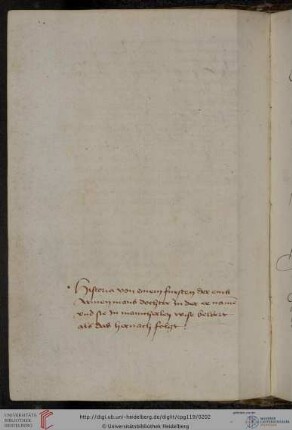 Historia von einem fursten der eins
armen mans dochter zu der ee nam
vnd sie In mannicherley weise bewert
als das hernach folgt
UNIVERSITÄTS-
BIBLIOTHEK
HEIDELBERG
http://digi.ub.uni-heidelberg.de/diglit/cpg119/0202
© Universitätsbibliothek Heidelberg